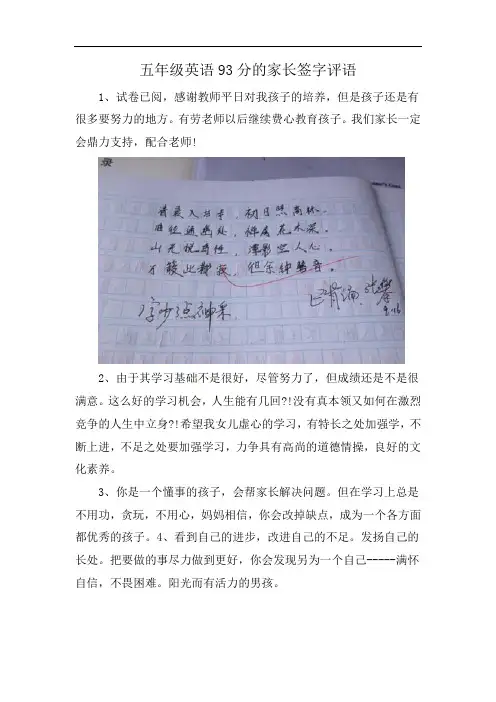 五年级英语93分的家长签字评语
1、试卷已阅，感谢教师平日对我孩子的培养，但是孩子还是有
很多要努力的地方。有劳老师以后继续费心教育孩子。我们家长一定
会鼎力支持，配合老师!
清晨入古寺，初日照高林。
曲径通幽处，禅房花木深。
山光悦鸟性，潭影空人心。
籁此都寂，但余钟磬音。
字少点神采.
已背诵.
9.16
2、由于其学习基础不是很好，尽管努力了，但成绩还是不是很
满意。这么好的学习机会，人生能有几回?!没有真本领又如何在激烈
竞争的人生中立身?!希望我女儿虚心的学习，有特长之处加强学，不
断上进，不足之处要加强学习，力争具有高尚的道德情操，良好的文
化素养。
3、你是一个懂事的孩子，会帮家长解决问题。但在学习上总是
不用功，贪玩，不用心，妈妈相信，你会改掉缺点，成为一个各方面
都优秀的孩子。4、看到自己的进步，改进自己的不足。发扬自己的
长处。把要做的事尽力做到更好，你会发现另为一个自己-----满怀
自信，不畏困难。阳光而有活力的男孩。